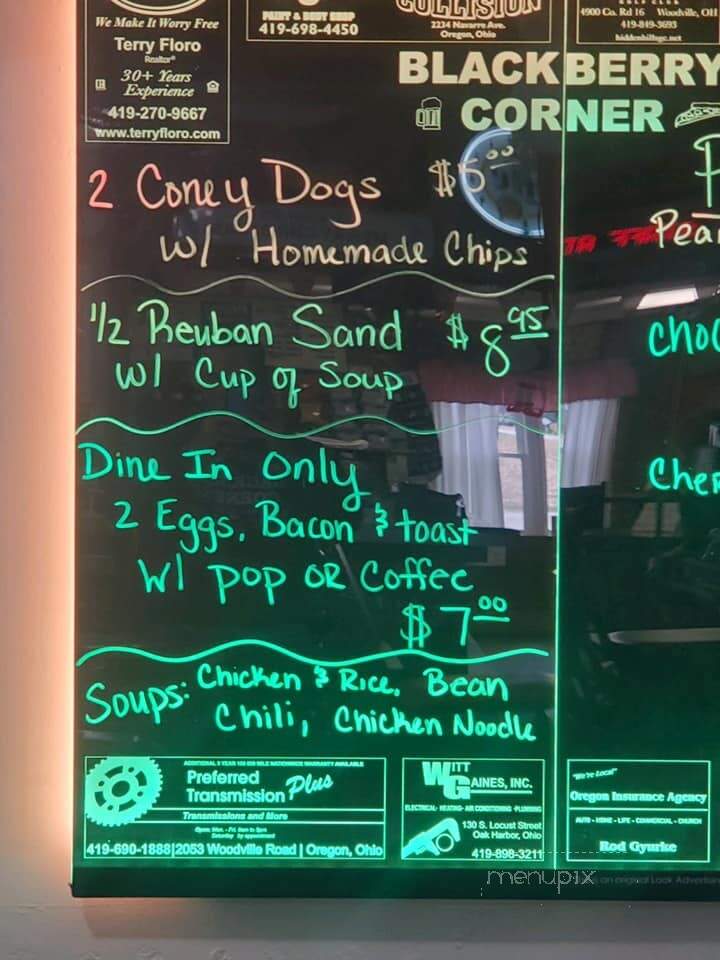 We Make It Worry Free
Terry Floro
Realtor®
30+ Years
Experience
419-270-9667
www.terryfloro.com
PAINT & BODY SHOP
419-698-4450
COLLISION
2234 Navarre Ave.
Oregon, Ohio
4900 Co. Rd 16 Woodville, OH
419-849-3693
hiddenhillsgc.net
BLACKBERRY
CORNER
2 Coney Dogs $6.00
W/ Homemade Chips
1/2 Reuban Sand $8.95
W/ Cup of Soup
Dine In Only
2 Eggs, Bacon & toast
W/ Pop OR Coffee
$7.00
Soups: Chicken & Rice, Bean
Chili, Chicken Noodle
Pea
Cho
Cher
Preferred
Transmission Plus
Transmissions and More
Open: Mon. - Fri. 8am to 5pm
Saturday by appointment
419-690-1888|2053 Woodville Road | Oregon, Ohio
WITT
GAINES, INC.
ELECTRICAL - HEATING - AIR CONDITIONING - PLUMBING
130 S. Locust Street
Oak Harbor, Ohio
419-898-3211
"We're Local"
Oregon Insurance Agency
AUTO - HOME - LIFE - COMMERCIAL - CHURCH
Rod Gyurke
menupix
an original Look Advertis